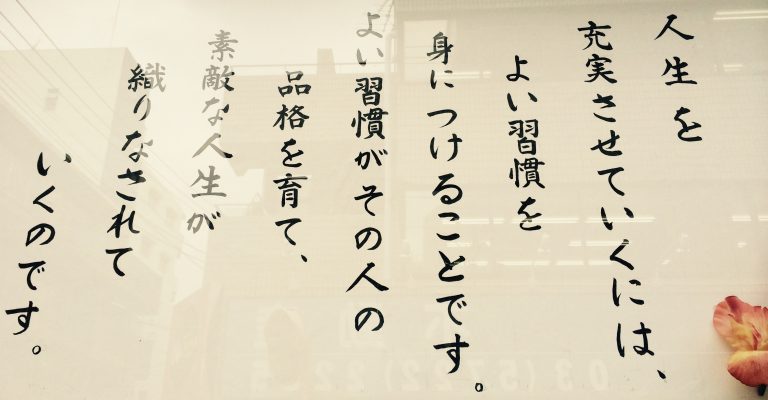 人生を
充実させていくには、
よい習慣を
身につけることです。
よい習慣がその人の
品格を育て、
素敵な人生が
織りなされて
いくのです。